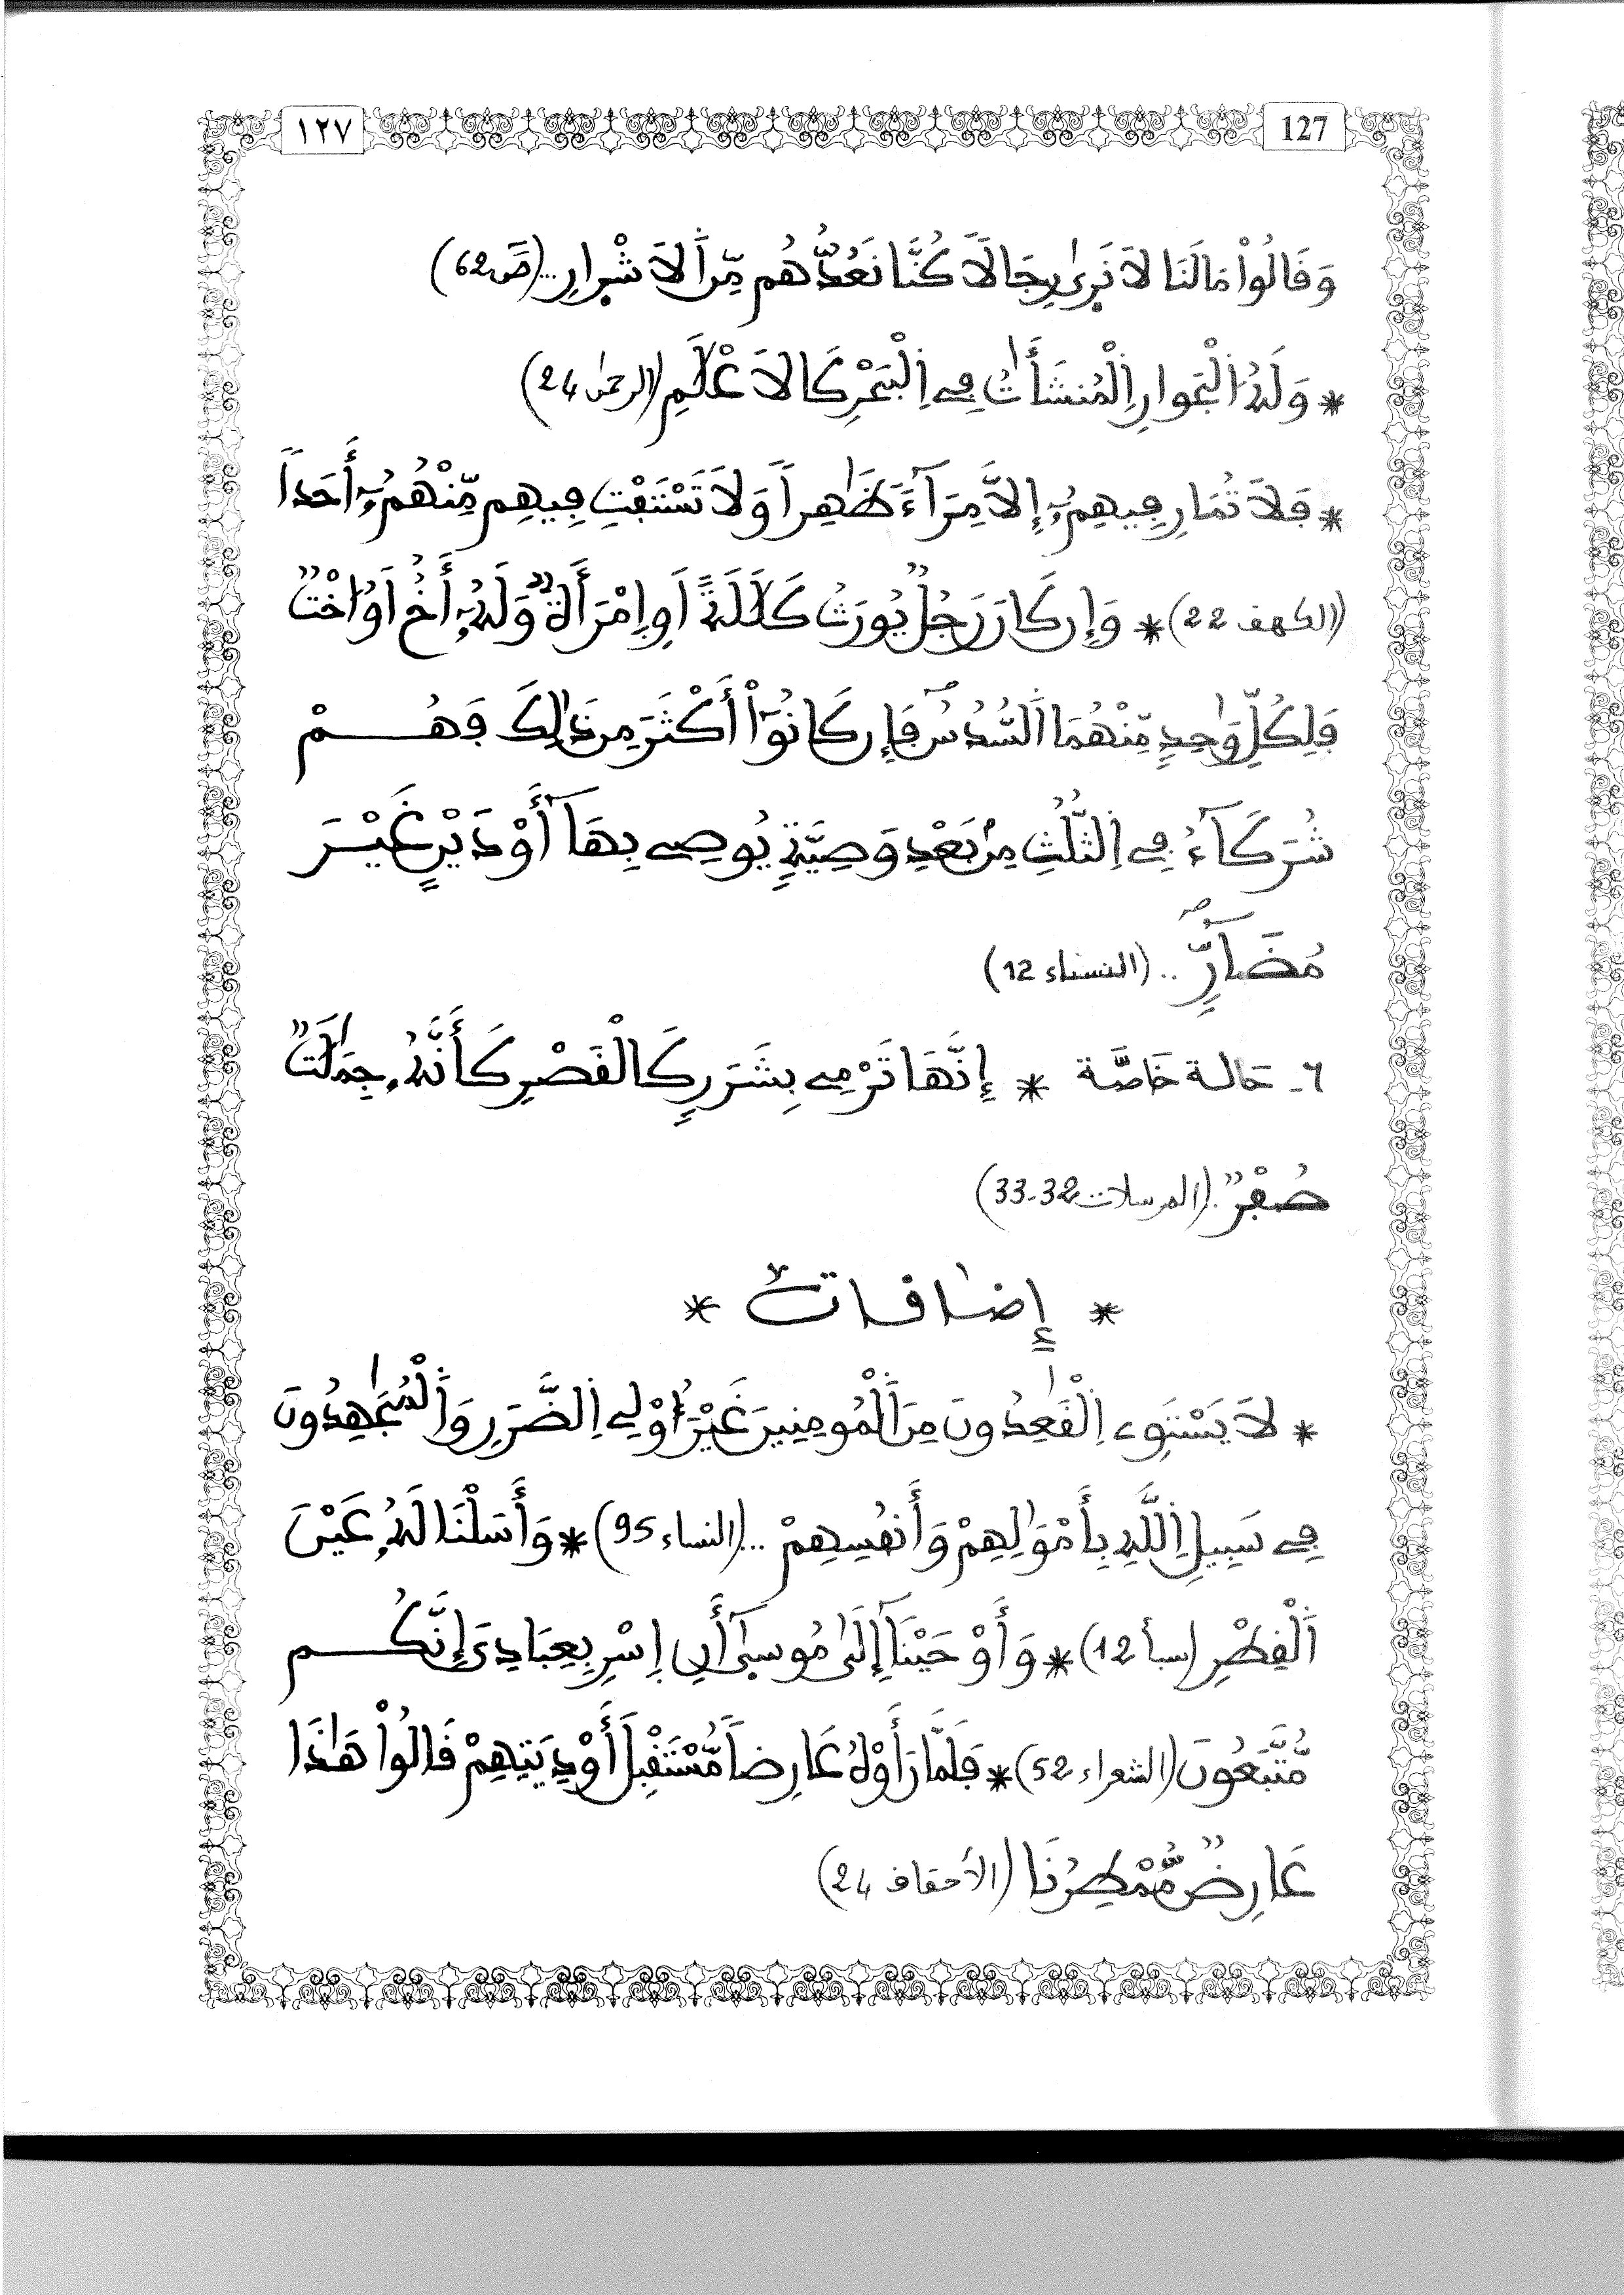 ١٢٧ 127
وَقَالُواْ مَالَنَا لَا نَرٜىٰ رِجَالاٗ كُنَّا نَعُدُّهُم مِّنَ اَ۬لَاشْرٜارِ...(صٓ 62)
* وَلَهُ اُ۬لْجَوارِ اِ۬لْمُنشَأَٰتُ فِے اِ۬لْبَحْرِ كَالَاعْلَٰمِ (الرحمٰن 24)
* فَلَا تُمَارِ فِيهِمُۥٓ إِلَّا مِرَآءٗ ظَٰهِراٗ وَلَا تَسْتَفْتِ فِيهِم مِّنْهُمُۥٓ أَحَداٗ
(الكهف 22) * وَإِن كَانَ رَجُلٞ يُورَثُ كَلَٰلَةً اَوِ اِمْرَأَةٞ وَلَهُۥٓ أَخٌ اَوُ اخْتٞ
فَلِكُلِّ وَٰحِدٖ مِّنْهُمَا اَ۬لسُّدُسُۖ فَإِن كَانُوٓاْ أَكْثَرَ مِن ذَٰلِكَ فَهُمْ
شُرَكَآءُ فِے اِ۬لثُّلُثِ مِنۢ بَعْدِ وَصِيَّةٖ يُوصِے بِهَآ أَوْ دَيْنٍ غَيْرَ
مُضَآرّٖۖ .. (النساء 12)
٦- حالة خَاصَّة * إِنَّهَا تَرْمِے بِشَرَرٖ كَالْقَصْرِ كَأَنَّهُۥ جِمَٰلَٰتٞ
صُفْرٞ..(المرسلات 32-33)
* إضافات *
* لَا يَسْتَوِے اِ۬لْقَٰعِدُونَ مِنَ اَ۬لْمُومِنِينَ غَيْرَ أُوْلِے اِ۬لضَّرَرِ وَالْمُجَٰهِدُونَ
فِے سَبِيلِ اِ۬للَّهِ بِأَمْوَٰلِهِمْ وَأَنفُسِهِمْ ...(النساء 95) * وَأَسَلْنَا لَهُۥ عَيْنَ
اَ۬لْقِطْرِ (سبأ 12) * وَأَوْحَيْنَآ إِلَىٰ مُوسىٰٓ أَنِ اِسْرِ بِعِبَادِيَ إِنَّكُم
مُّتَّبَعُونَ (الشعراء 52) * فَلَمَّا رَأَوْهُ عَارِضاٗ مُّسْتَقْبِلَ أَوْدِيَتِهِمْ قَالُواْ هَٰذَا
عَارِضٞ مُّمْطِرُنَا (الأحقاف 24)